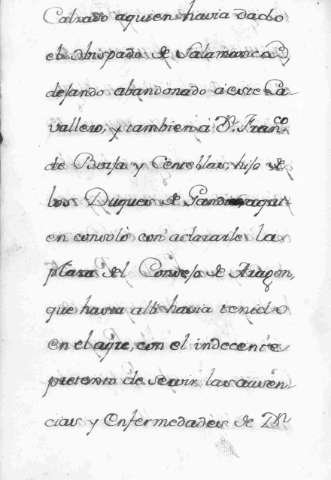 Calvado aquien havia dado
el obispado de Salamanca,
dejando abandonado à este Ca
vallero; y tambien à Dn. Franco.
de Borja y Centellas, hijo de
los Duques de Gandia aqui
en consoló con aclararle la
plaza del Consejo de Aragon,
que hasta alli havia tenido
en el ayre, con el indecente
pretexto de servir las ausen
cias y Enfermedades de Dn